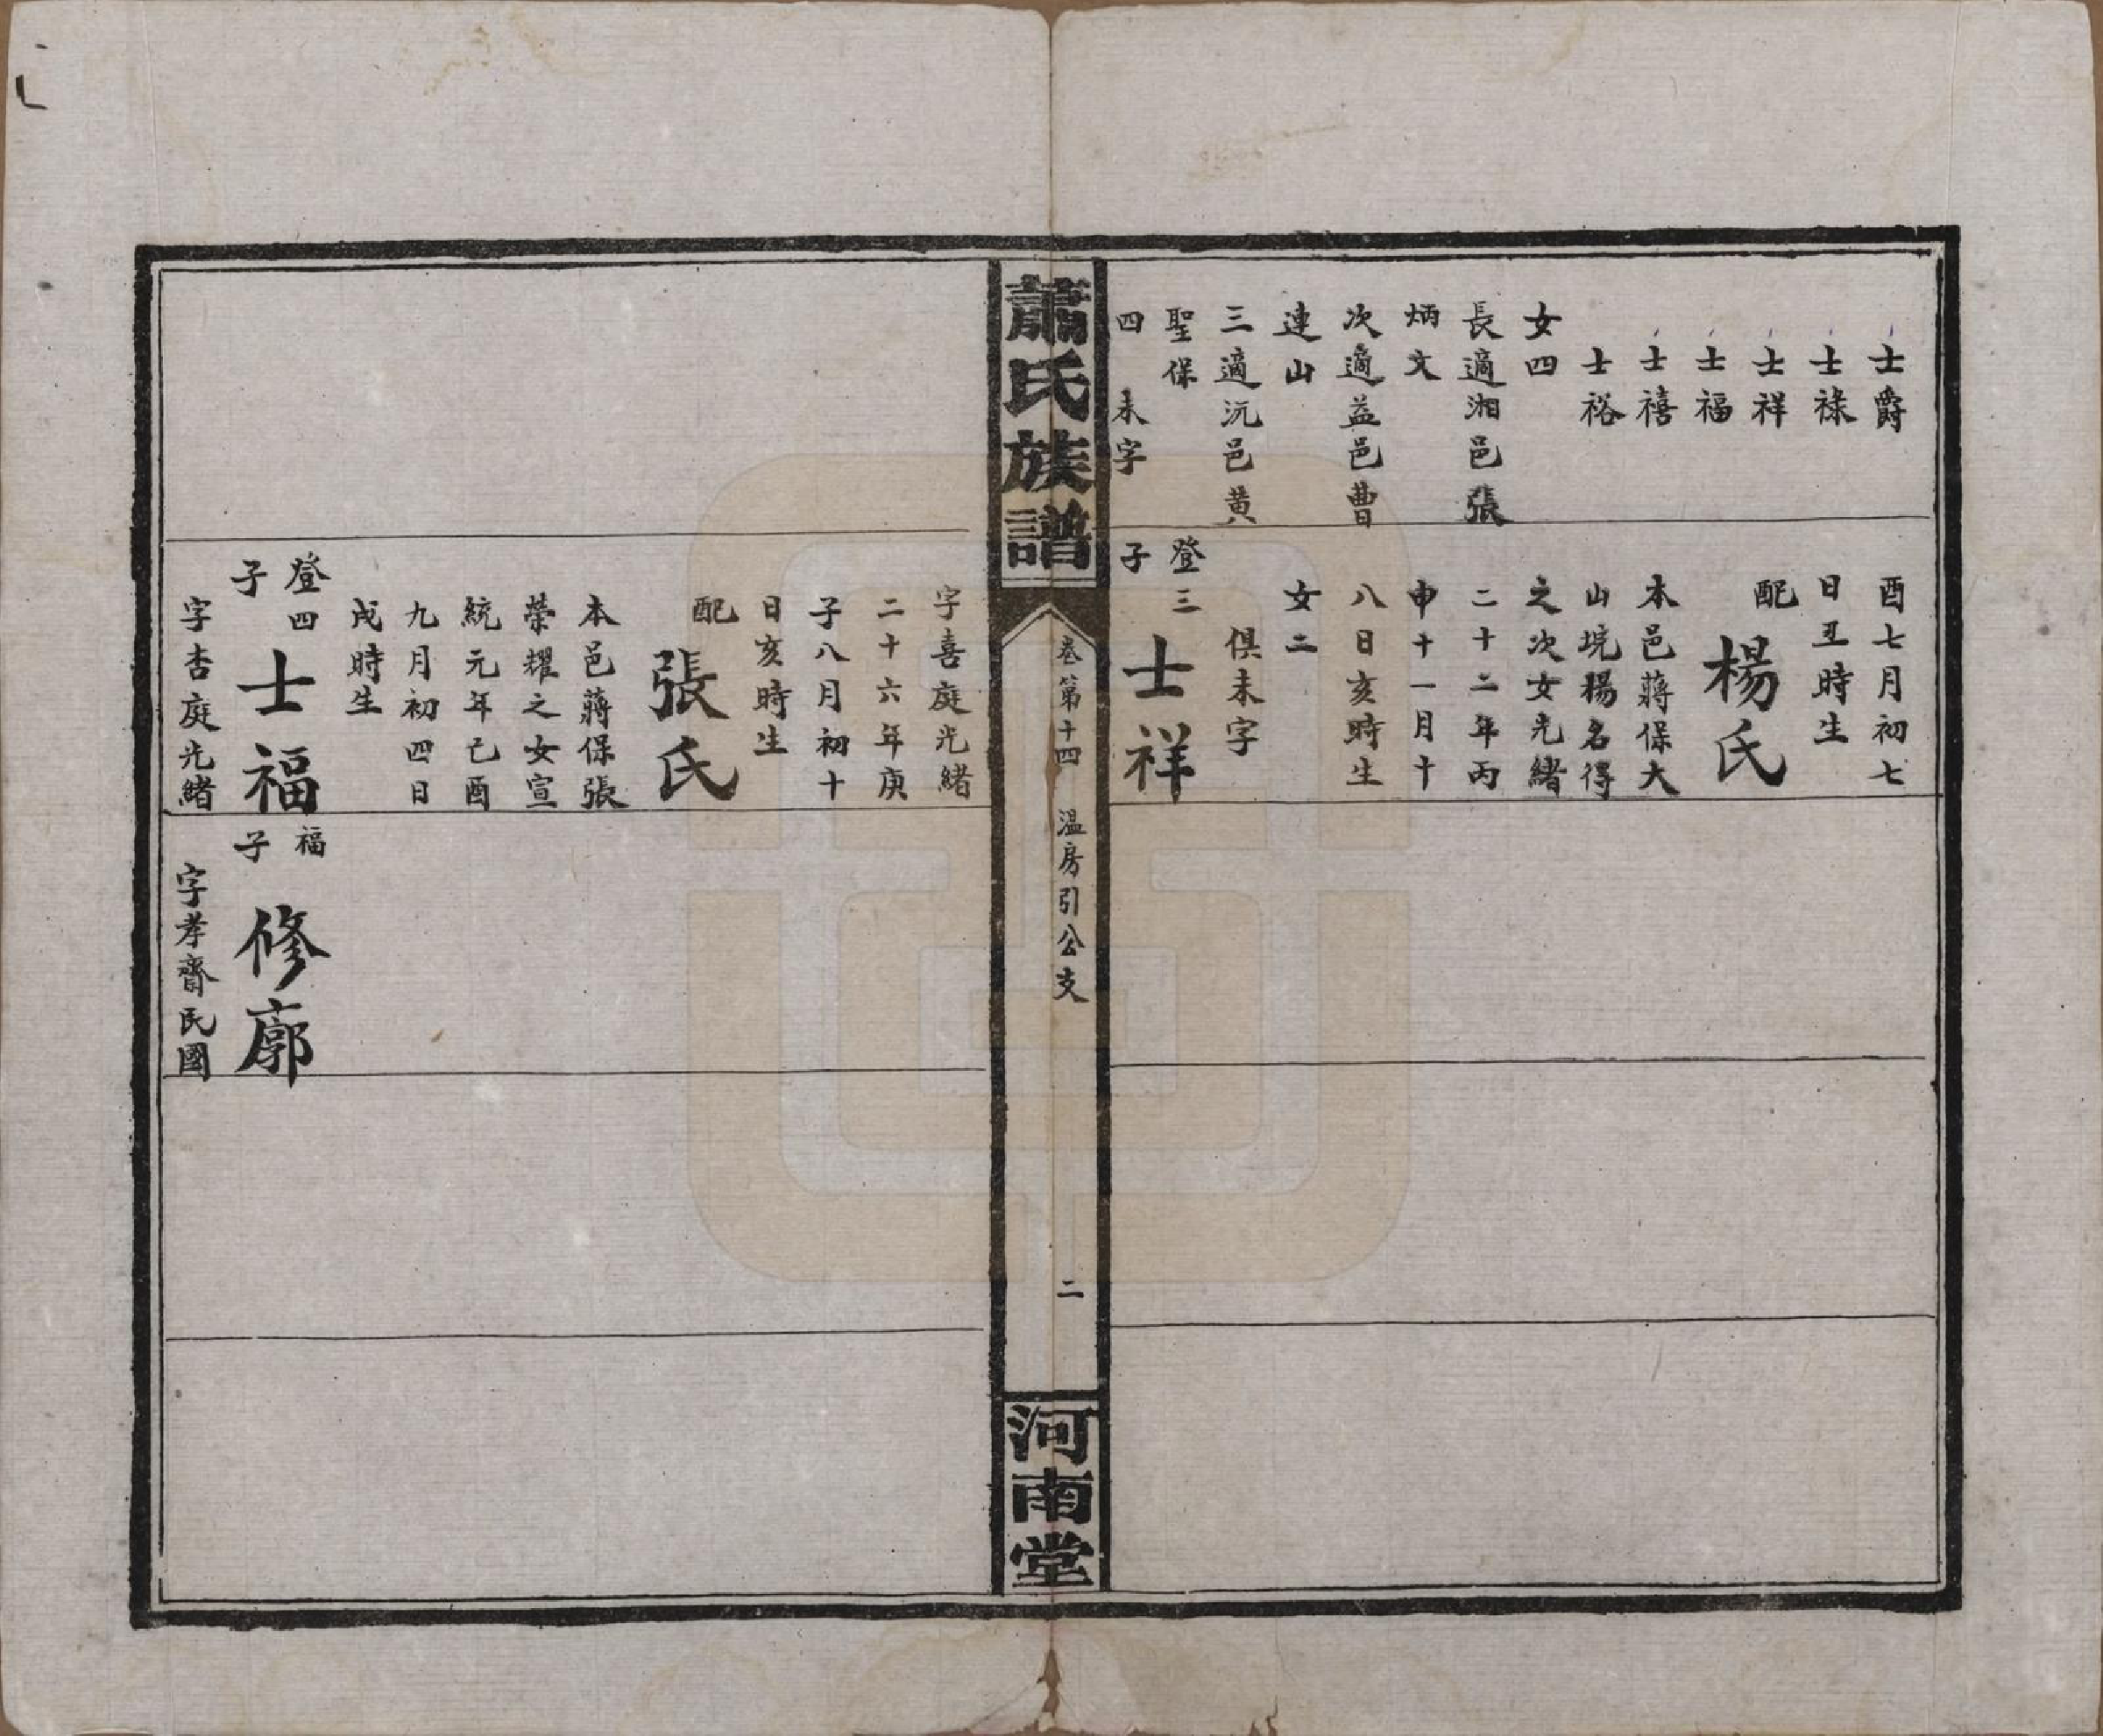 士爵
士祿
士祥
士福
士禧
士裕
女四
長適湘邑張
炳文
次適益邑曹
連山
三適沅邑黄
聖保
四　未字
酉七月初七
日丑時生
配
楊氏
本邑蔣保大
山垸楊名得
之次女光緒
二十二年丙
申十一月十
八日亥時生
女二
俱未字
登三
子
士祥
蕭氏族譜
卷第十四　溫房引公支
二
河南堂
字喜庭光緒
二十六年庚
子八月初十
日亥時生
配
張氏
本邑蔣保張
榮耀之女宣
統元年己酉
九月初四日
戌時生
登四
子
士福
字杏庭光緒
福
子
修廓
字孝齋民國